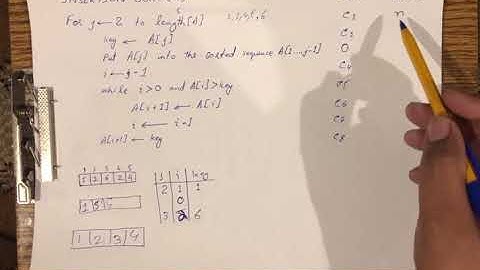 For j ← 2 to length[A] c1 n
key ← A[j] c2
Put A[j] into the sorted sequence A[1...j-1] 0
i ← j-1 c4
while i>0 and A[i]>key c5
A[i+1] ← A[i] c6
i ← i-1 c7
A[i+1] ← key c8
1 2 3 4 5
j i key
2 1 1
0
3 2 6
1 2 3 4